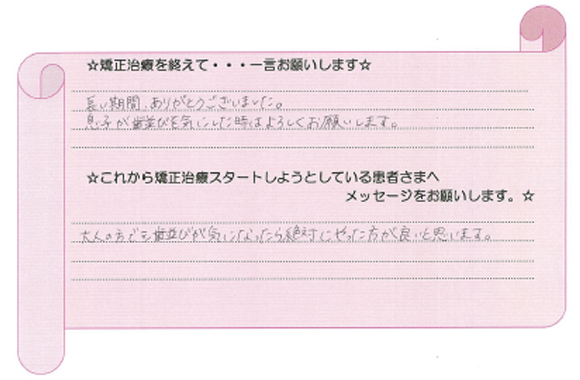 ☆矯正治療を終えて・・・一言お願いします☆
長い期間、ありがとうございました。
息子が歯並びを気にした時はよろしくお願いします。
☆これから矯正治療スタートしようとしている患者さまへ
メッセージをお願いします。☆
大人の方でも歯並びが気になったら絶対にやった方が良いと思います。